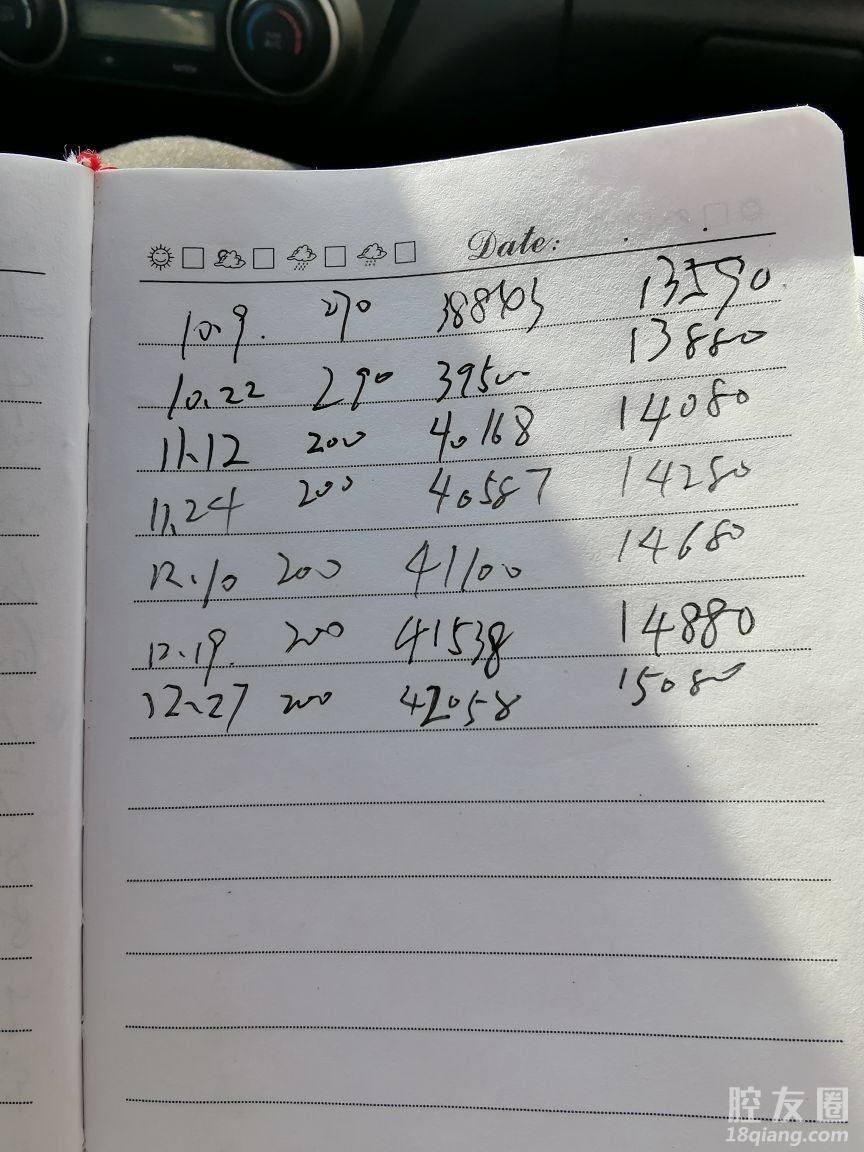 Date:
10.9. 270 13590
10.22 290 39500 13880
11.12 200 40168 14080
11.24 200 40587 14280
12.10 200 41100 14680
12.19. 200 41538 14880
12.27 200 42058 15080
腔友圈
18qiang.com